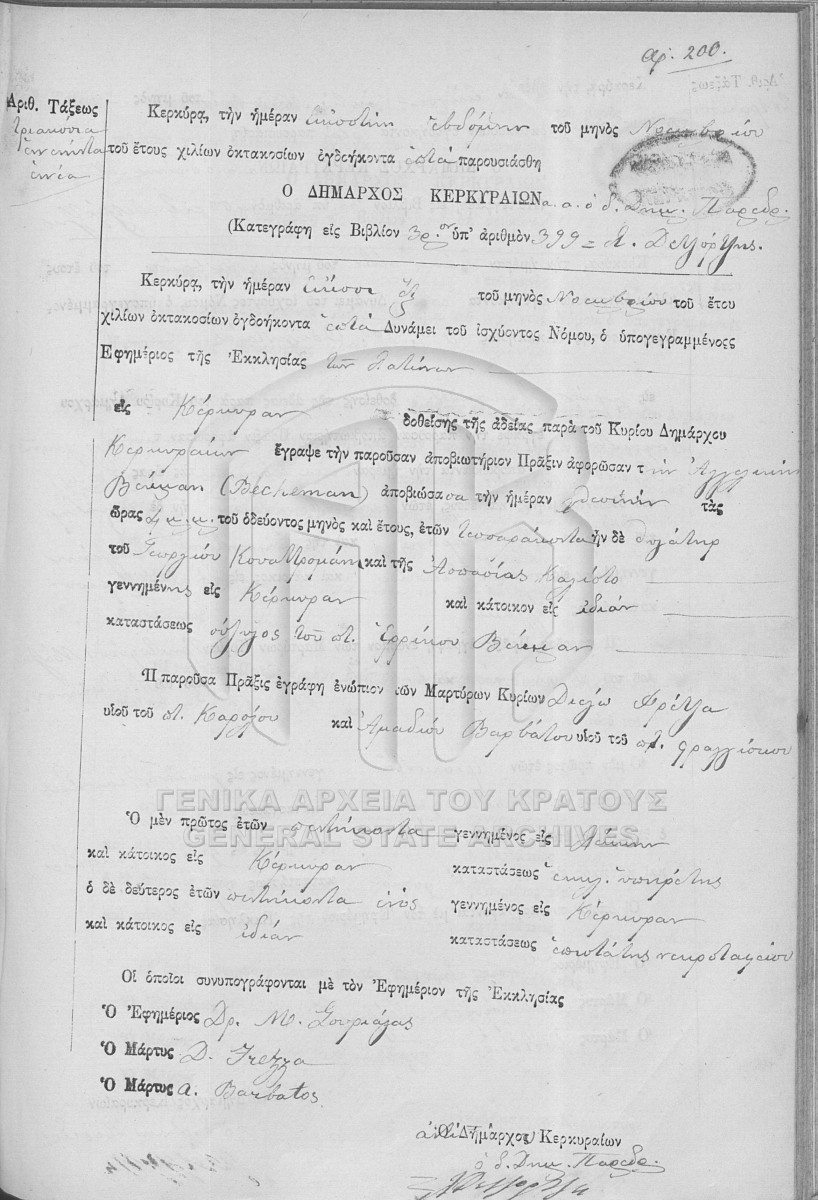 Αρ. 200.
Ἀριθ. Τάξεως
τριακόσια
ἐννενήντα
ἐννέα
Κερκύρᾳ, τὴν ἡμέραν εἰκοστὴν ἑβδόμην τοῦ μηνὸς Νοεμβρίου
τοῦ ἔτους χιλίων ὀκτακοσίων ὀγδοήκοντα ἑπτὰ παρουσιάσθη
Ὁ ΔΗΜΑΡΧΟΣ ΚΕΡΚΥΡΑΙΩΝ α. α. ὁ δ. Δημ. Πάρεδρ.
(Κατεγράφη εἰς Βιβλίον 3ον ὑπ' ἀριθμὸν 399
Κερκύρᾳ, τὴν ἡμέραν εἴκοσι ἓξ τοῦ μηνὸς Νοεμβρίου τοῦ ἔτου
χιλίων ὀκτακοσίων ὀγδοήκοντα ἑπτὰ Δυνάμει τοῦ ἰσχύοντος Νόμου, ὁ ὑπογεγραμμένος
Ἐφημέριος τῆς Ἐκκλησίας τῶν Λατίνων
εἰς Κέρκυραν δοθείσης τῆς ἀδείας παρὰ τοῦ Κυρίου Δημάρχου
Κερκυραίων ἔγραψε τὴν παροῦσαν ἀποβιωτήριον Πρᾶξιν ἀφορῶσαν τὴν Ἀγγελικὴν
Βέκμαν (Beckeman) ἀποβιώσασα τὴν ἡμέραν τὰς
ὥρας τοῦ ὁδεύοντος μηνὸς καὶ ἔτους, ἐτῶν τεσσαράκοντα ἦν δὲ θυγάτηρ
τοῦ Γεωργίου καὶ τῆς Ἀσπασίας Καλίστο
γεννημένης εἰς Κέρκυραν καὶ κάτοικον εἰς ἰδίαν
καταστάσεως σύζυγος τοῦ ποτ. Ἐρρίκου Βέκμαν
Ἡ παροῦσα Πρᾶξις ἐγράφη ἐνώπιον τῶν Μαρτύρων Κυρίων Διέγο Φρέτζα
υἱοῦ τοῦ ποτ. Καρόλου καὶ Ἀμαδιου Βαρβάτου υἱοῦ τοῦ ποτ. Φραγγίσκου
ΓΕΝΙΚΑ ΑΡΧΕΙΑ ΤΟΥ ΚΡΑΤΟΥΣ
GENERAL STATE ARCHIVES
Ὁ μὲν πρῶτος ἐτῶν πεντήκοντα γεννημένος εἰς
καὶ κάτοικος εἰς Κέρκυραν καταστάσεως ἐκκλ. ὑπηρέτης
ὁ δὲ δεύτερος ἐτῶν πεντήκοντα ἑνὸς γεννημένος εἰς Κέρκυραν
καὶ κάτοικος εἰς ἰδίαν καταστάσεως ἐπιστάτης νεκροταφείου
Οἱ ὁποῖοι συνυπογράφονται μὲ τὸν Ἐφημέριον τῆς Ἐκκλησίας
Ὁ Ἐφημέριος Δρ. Μ.
Ὁ Μάρτυς D. Frezza
Ὁ Μάρτυς A. Barbatos
Ὁ Δήμαρχος Κερκυραίων
ὁ δ. Δημ. Πάρεδρ.